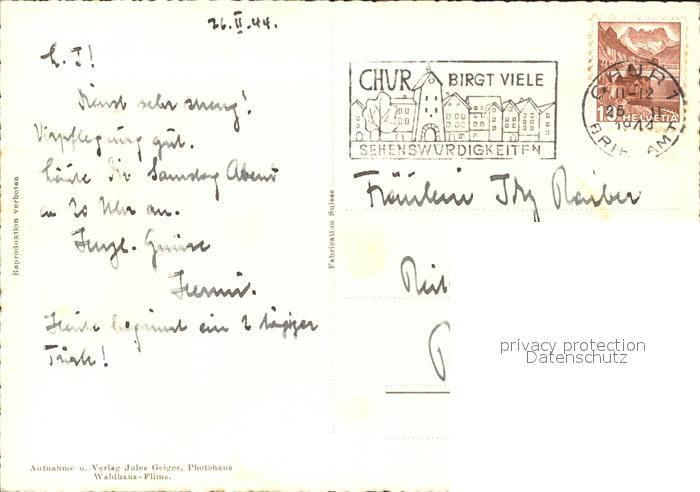 26.II.44.
L. I!
Dienst sehr streng!
Verpflegung gut.
Läute Dir Samstag Abend
an 20 Uhr an.
Herzl. Grüsse
Hermi.
Heute beginnt ein 2 tägiger
Reproduktion verboten
Aufnahme u. Verlag Jules Geiger, Photohaus
Waldhaus-Flims.
Fabrication Suisse
CHUR BIRGT VIELE
SEHENSWÜRDIGKEITEN
CHUR 1
II-12
1944
BRIEFAMT
HELVETIA
Fräulein Idy
privacy protection
Datenschutz